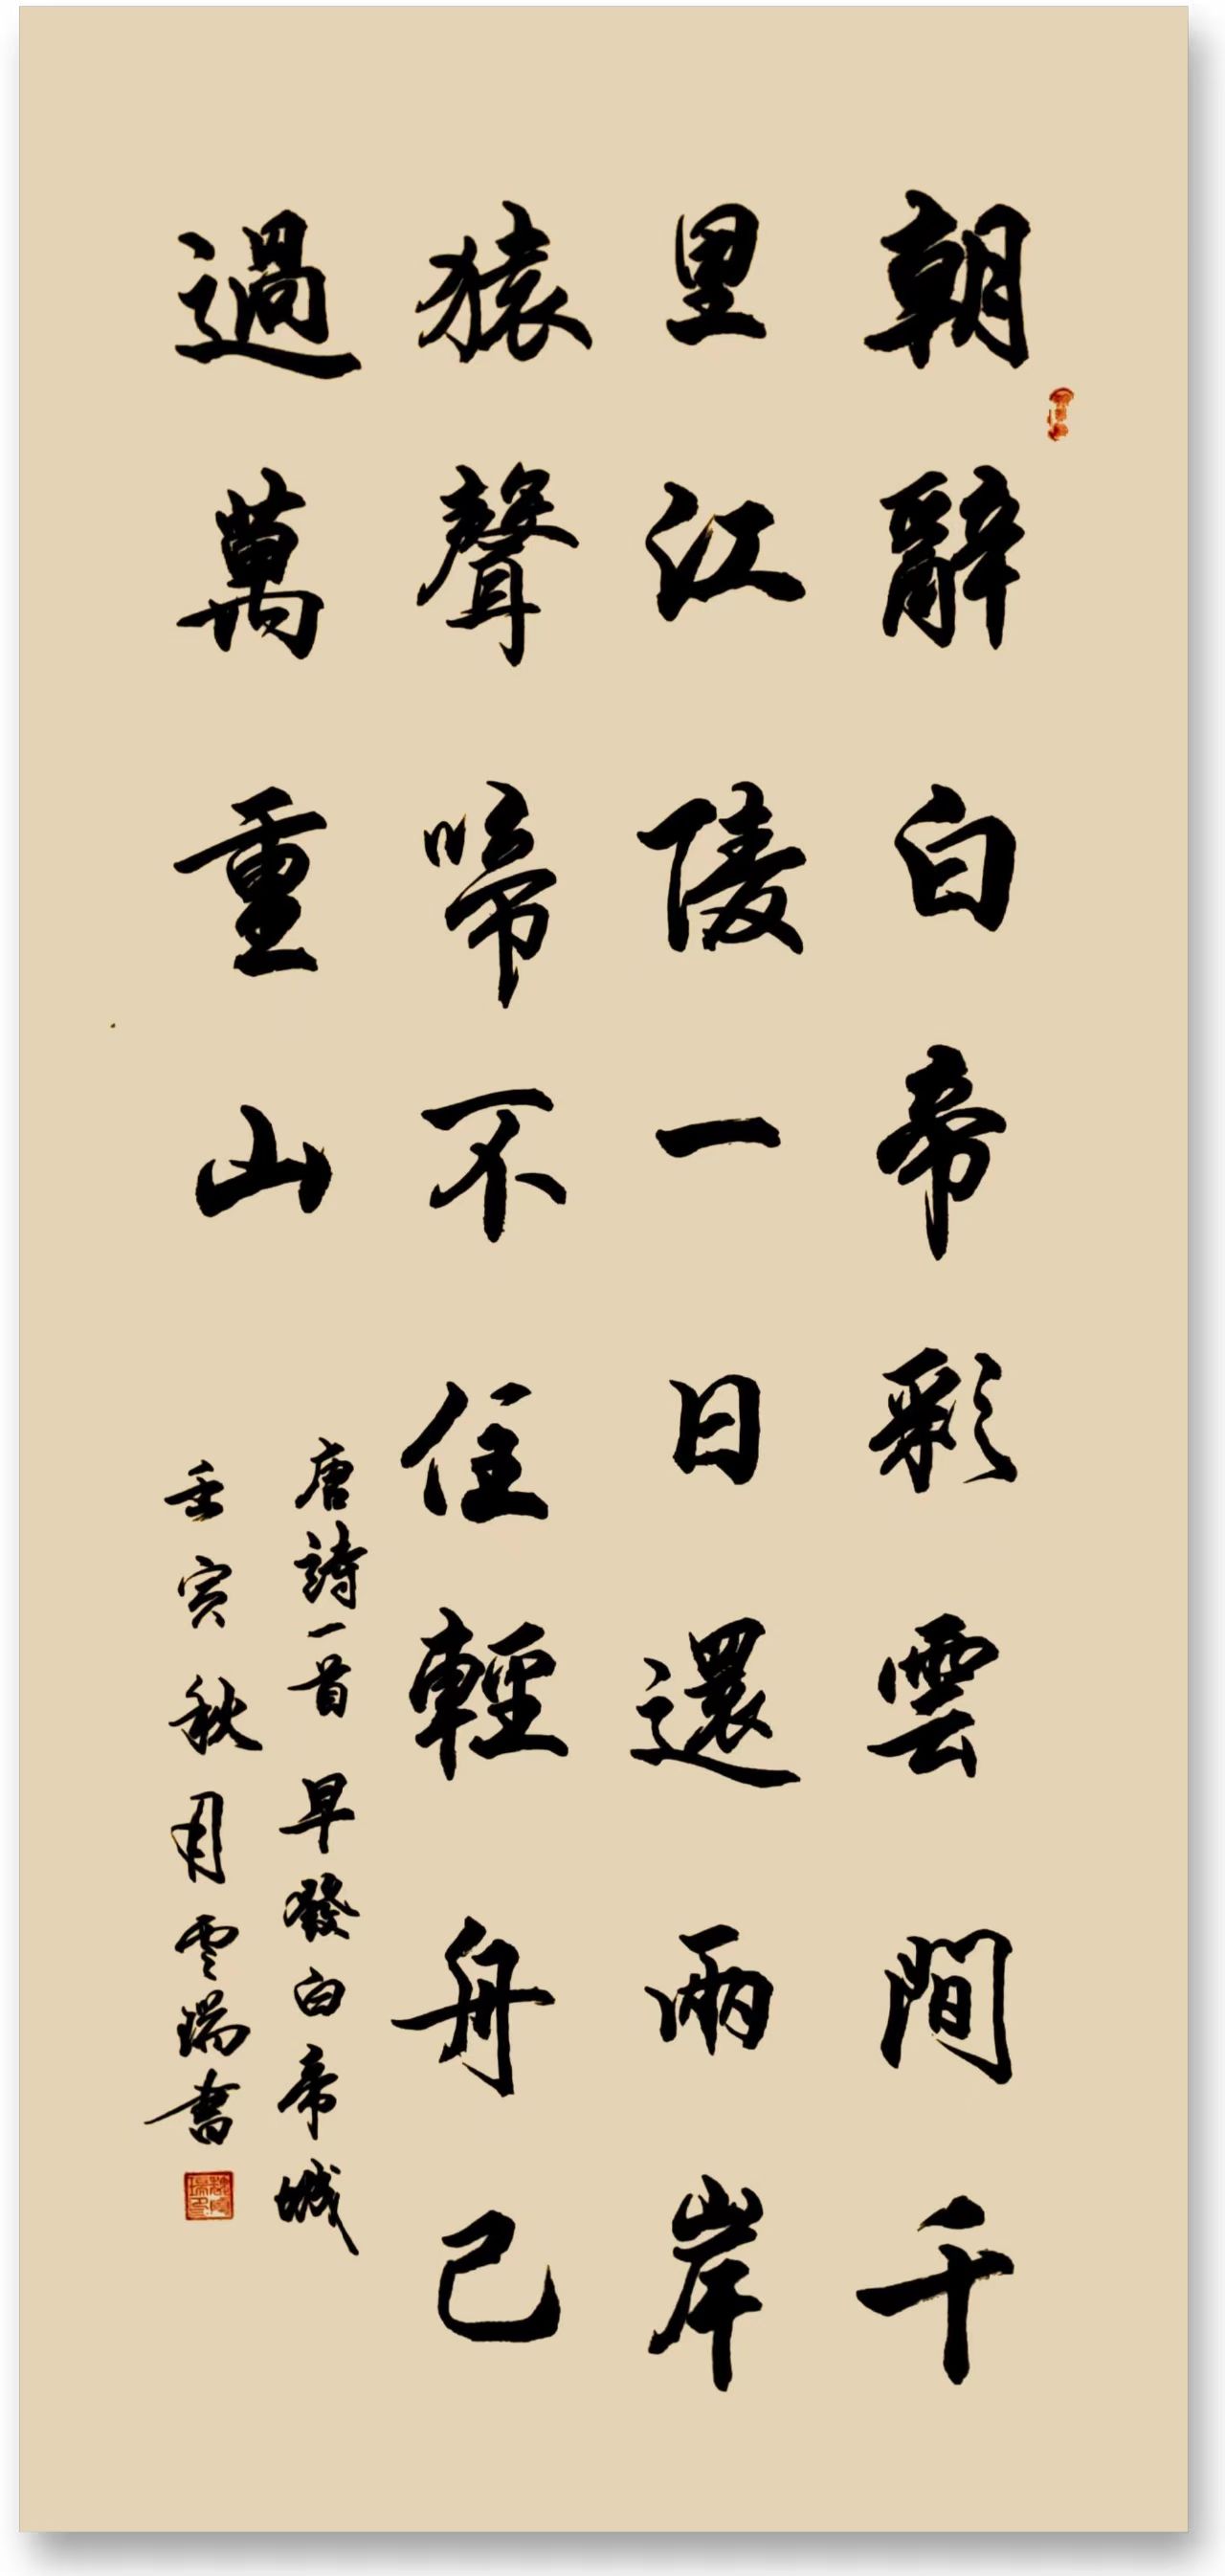 朝辭白帝彩雲間千
里江陵一日還兩岸
猿聲啼不住輕舟己
過萬重山
唐詩一首 早發白帝城
壬寅秋月雲瑞書